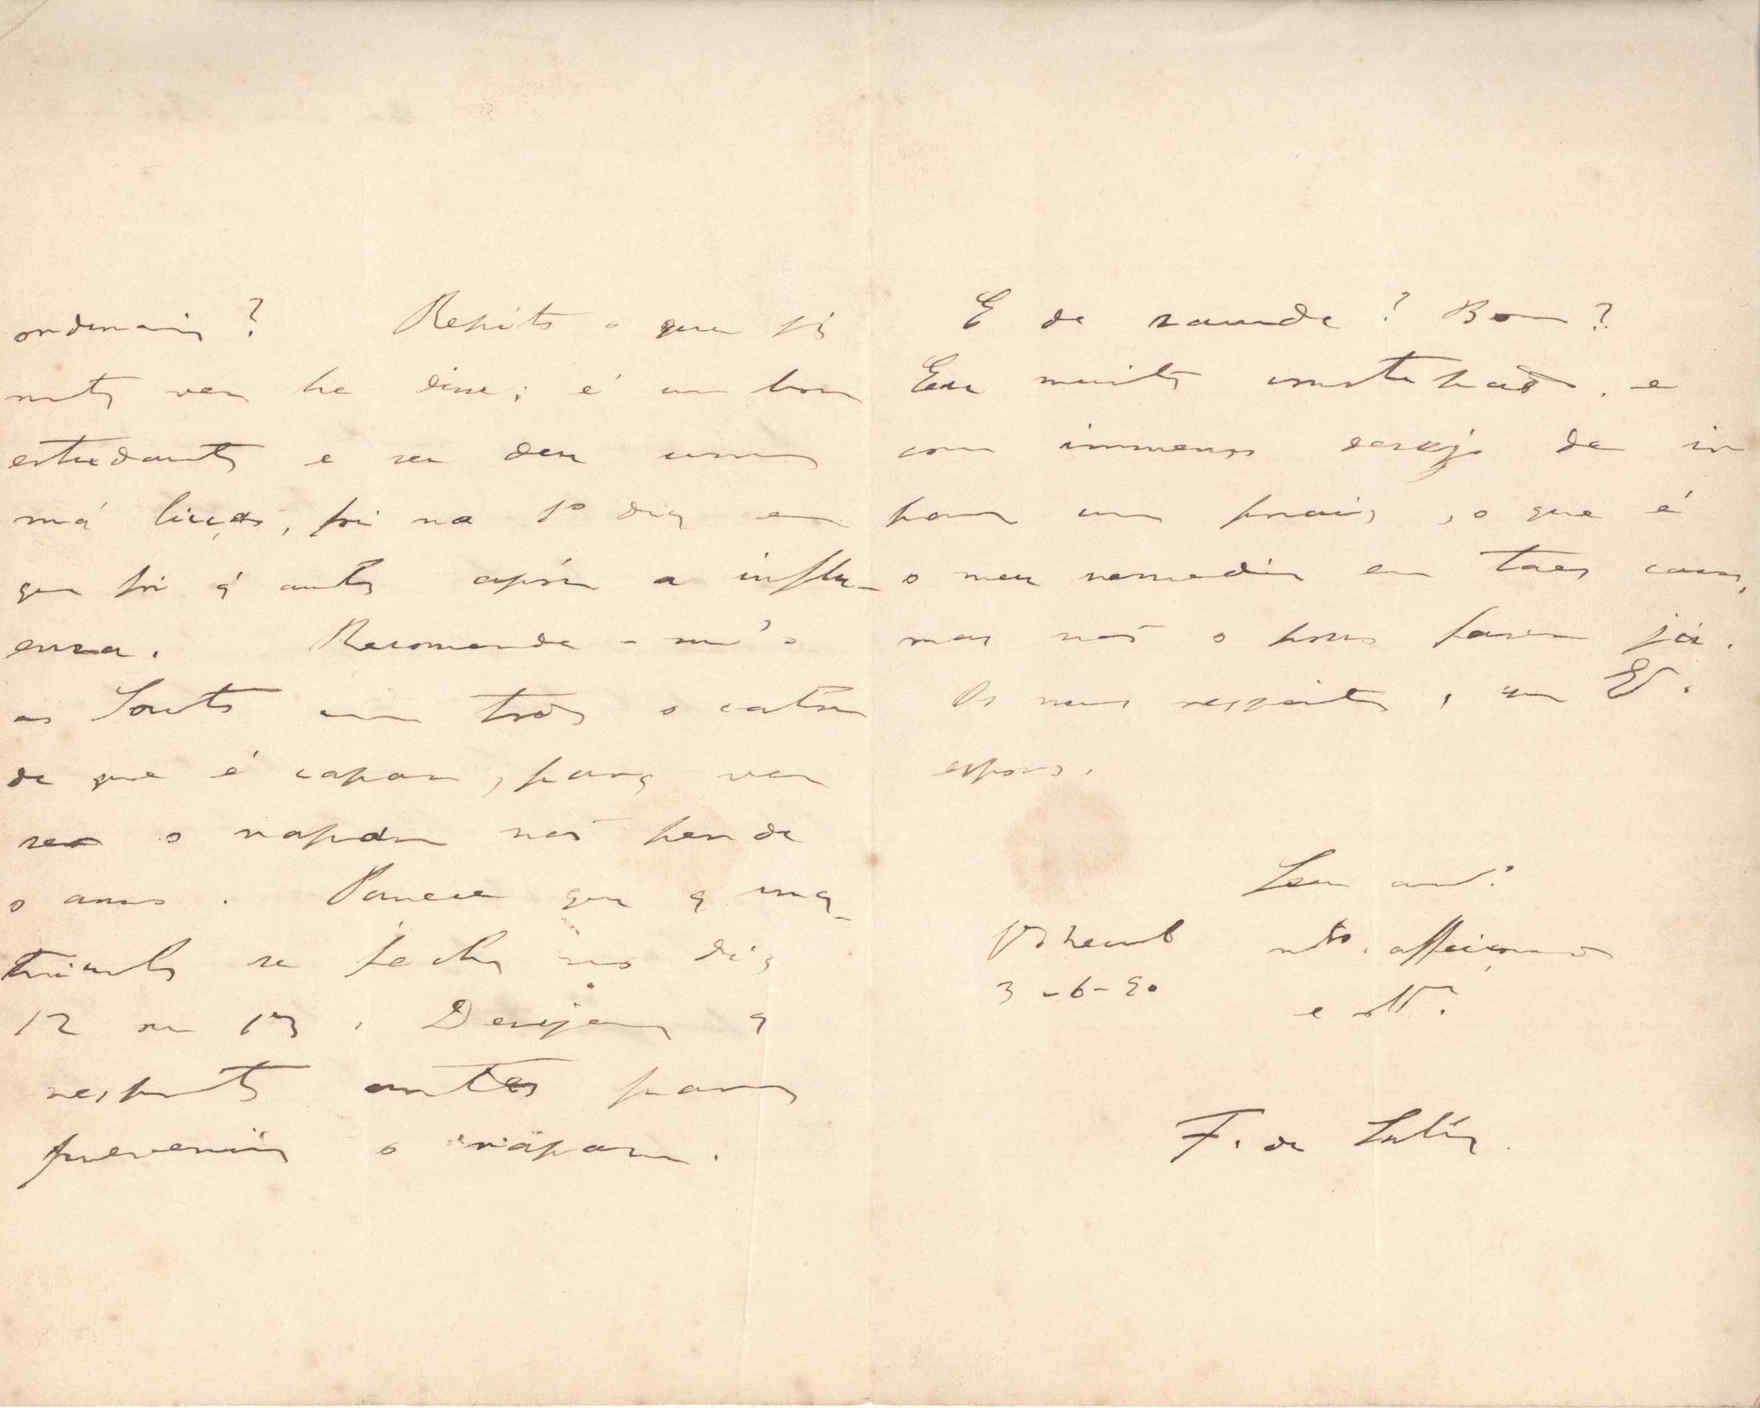 ordinario? Repito o que já
muita vez lhe disse; é um bom
estudante e se deu uma
má lição, foi no 1º dia em
que foi á aula após a influ-
enza. Recomende-m'o
ao Souto com todo o calor
de que é capaz, para ver
se o rapaz não perde
o anno. Parece que a ma-
tricula se fecha no dia
12 ou 13. Desejava a
resposta antes para
prevenir o rapaz.
E de saude? Bom?
Eu muito constipado, e
com immenso desejo de ir
para uma praia, o que é
o meu remedio em taes casos,
mas não o posso fazer já.
Os meus respeitos a
esposa.
Seu
3-6-90
mto. affeiçoado
e
F. de